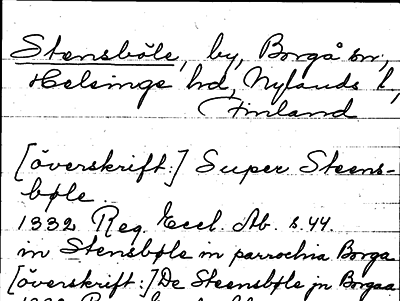 Stensböle, by, Borgå sn,
Helsinge hd, Nylands l,
Finland
[överskrift:] Super Steens-
bøle
1332 Reg. Eccl. Ab. s. 44.
in Stensbøle in parrochia Borga
[överskrift:] De Steensbøle jn Borgaa